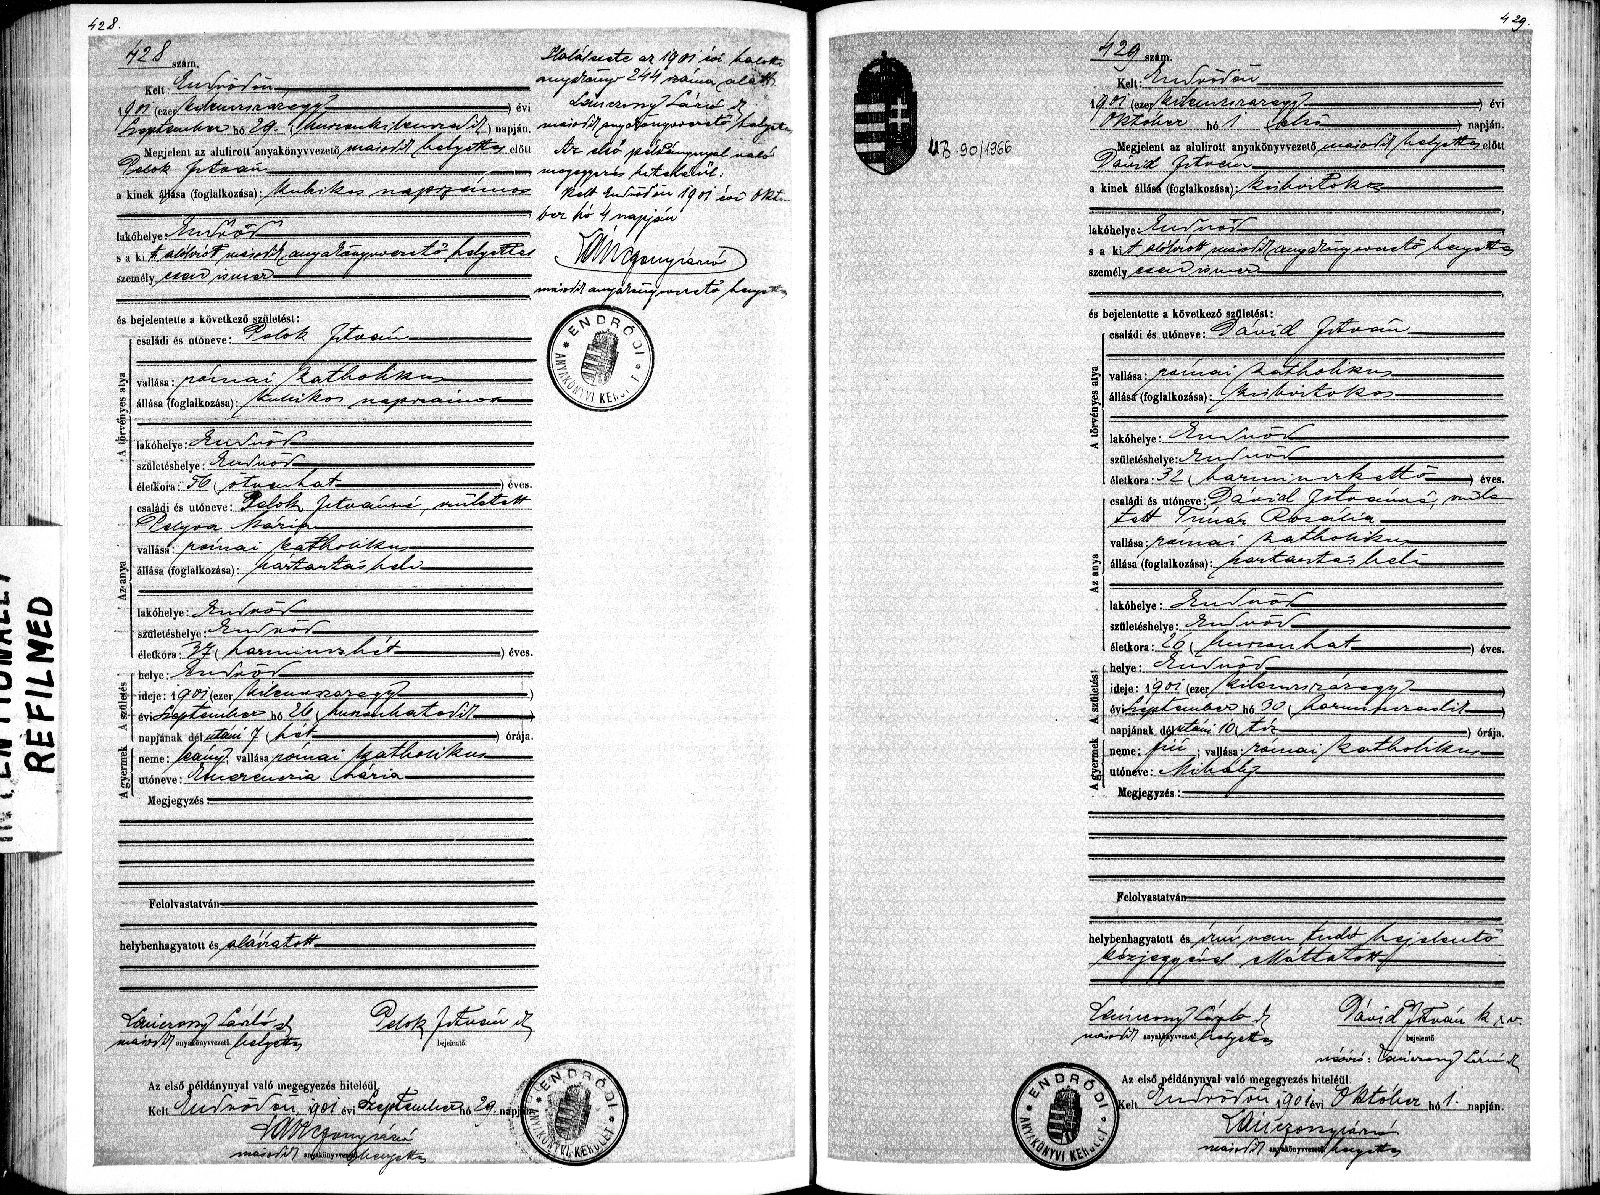 428.
428 szám.
Kelt: Endrődön
1901 (ezer kilencszázegy) évi
Szeptember hó 29. (huszonkilencedik) napján.
Megjelent az alulirott anyakönyvvezető második helyettes előtt
Polok István
a kinek állása (foglalkozása): kubikos napszámos
lakóhelye: Endrőd
s a kit alólírott második anyakönyvvezető helyettes
személyesen ismer
és bejelentette a következő születést:
A törvényes atya
családi és utóneve: Polok István
vallása: római katholikus
állása (foglalkozása): kubikos napszámos
lakóhelye: Endrőd
születéshelye: Endrőd
életkora: 56 (ötvenhat) éves.
Az anya
családi és utóneve: Polok Istvánné, született
Mária
vallása: római katholikus
állása (foglalkozása): háztartásbeli
lakóhelye: Endrőd
születéshelye: Endrőd
életkora: 37 (harminczhét) éves.
A születés
helye: Endrőd
ideje: 1901 (ezer kilenczszázegy)
évi Szeptember hó 26 (huszonhatodik)
napjának délutáni 7 (hét) órája.
A gyermek
neme: leány; vallása: római katholikus
utóneve: Emerenczia Mária
Megjegyzés:
Felolvastatván
helybenhagyatott és aláíratott
Lánczonyi László sk
második anyakönyvvezető helyettes
Polok István sk
bejelentő
Az első példánynyal való megegyezés hiteléül.
Kelt Endrődön, 1901 évi Szeptember hó 29. napján.
Lánczonyi László
második anyakönyvvezető helyettes
ENDRŐDI
ANYAKÖNYVI KERÜLET
Halálesete az 1901 évi halotti
anyakönyv 244 száma alatt.
Lánczonyi László sk
második anyakönyvvezető helyettes
Az első példánynyal való
megegyezés hiteléül.
Kelt Endrődön 1901 évi Októ-
ber hó 4 napján
Lánczonyi László
második anyakönyvvezető helyettes
ENDRŐDI
ANYAKÖNYVI KERÜLET
INTENTIONALLY
REFILMED
429.
90/1966
429 szám.
Kelt: Endrődön
1901 (ezer kilenczszázegy) évi
Október hó 1 (első) napján.
Megjelent az alulirott anyakönyvvezető második helyettes előtt
Dávid István
a kinek állása (foglalkozása): kisbirtokos
lakóhelye: Endrőd
s a kit alólírott második anyakönyvvezető helyettes
személyesen ismer
és bejelentette a következő születést:
A törvényes atya
családi és utóneve: Dávid István
vallása: római katholikus
állása (foglalkozása): kisbirtokos
lakóhelye: Endrőd
születéshelye: Endrőd
életkora: 32 (harminczkettő) éves.
Az anya
családi és utóneve: Dávid Istvánné, szüle-
tett Tímár Rozália
vallása: római katholikus
állása (foglalkozása): háztartásbeli
lakóhelye: Endrőd
születéshelye: Endrőd
életkora: 26 (huszonhat) éves.
A születés
helye: Endrőd
ideje: 1901 (ezer kilenczszázegy)
évi Szeptember hó 30 (harminczadik)
napjának délutáni 10 (tíz) órája.
A gyermek
neme: fiú; vallása: római katholikus
utóneve: Mihály
Megjegyzés:
Felolvastatván
helybenhagyatott és írni nem tudó bejelentő
kézjegyével elláttatott
Lánczonyi László sk
második anyakönyvvezető helyettes
Dávid István k x v.
bejelentő
névíró: Lánczonyi László sk
Az első példánynyal való megegyezés hiteléül.
Kelt Endrődön 1901 évi Október hó 1. napján.
Lánczonyi László
második anyakönyvvezető helyettes
ENDRŐDI
ANYAKÖNYVI KERÜLET